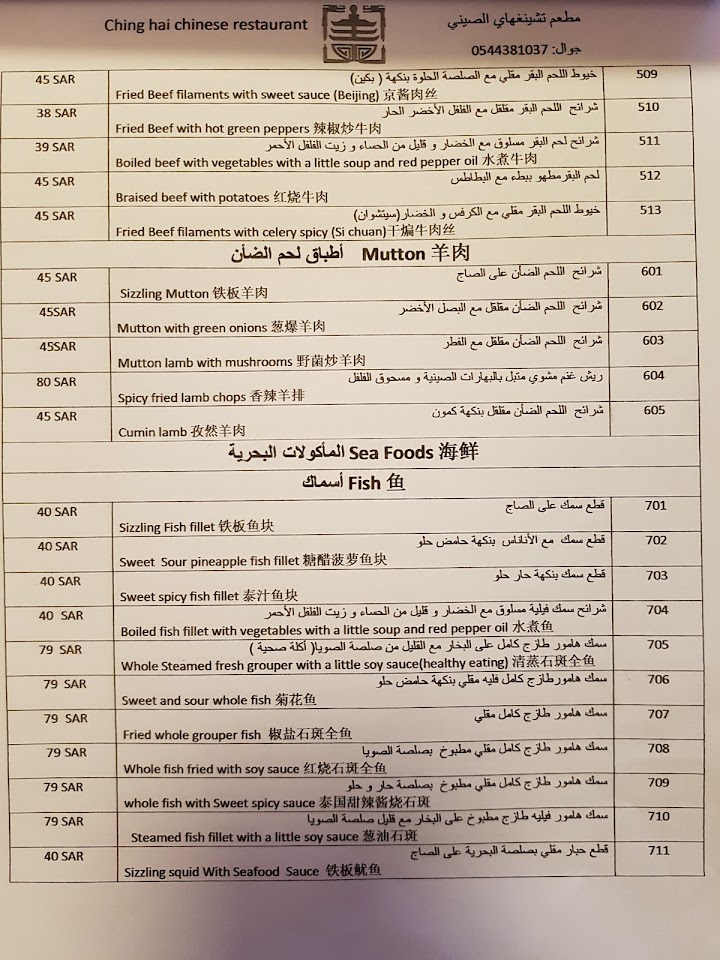 Ching hai chinese restaurant
مطعم تشينغهاي الصيني
جوال: 0544381037
45 SAR خيوط اللحم البقر مقلي مع الصلصة الحلوة بنكهة ( بكين) 509
Fried Beef filaments with sweet sauce (Beijing) 京酱肉丝
38 SAR شرائح اللحم البقر مقلقل مع الفلفل الأخضر الحار 510
Fried Beef with hot green peppers 辣椒炒牛肉
39 SAR شرائح لحم البقر مسلوق مع الخضار و قليل من الحساء و زيت الفلفل الأحمر 511
Boiled beef with vegetables with a little soup and red pepper oil 水煮牛肉
45 SAR لحم البقرمطهو ببطء مع البطاطس 512
Braised beef with potatoes 红烧牛肉
45 SAR خيوط اللحم البقر مقلي مع الكرفس و الخضار(سيتشوان) 513
Fried Beef filaments with celery spicy (Si chuan)干煸牛肉丝
أطباق لحم الضأن Mutton 羊肉
45 SAR شرائح اللحم الضأن على الصاج 601
Sizzling Mutton 铁板羊肉
45SAR شرائح اللحم الضأن مقلقل مع البصل الأخضر 602
Mutton with green onions 葱爆羊肉
45SAR شرائح اللحم الضأن مقلقل مع الفطر 603
Mutton lamb with mushrooms 野菌炒羊肉
80 SAR ريش غنم مشوي متبل بالبهارات الصينية و مسحوق الفلفل 604
Spicy fried lamb chops 香辣羊排
45 SAR شرائح اللحم الضأن مقلقل بنكهة كمون 605
Cumin lamb 孜然羊肉
المأكولات البحرية Sea Foods 海鲜
أسماك Fish 鱼
40 SAR قطع سمك على الصاج 701
Sizzling Fish fillet 铁板鱼块
40 SAR قطع سمك مع الأناناس بنكهة حامض حلو 702
Sweet Sour pineapple fish fillet 糖醋菠萝鱼块
40 SAR قطع سمك بنكهة حار حلو 703
Sweet spicy fish fillet 泰汁鱼块
40 SAR شرائح سمك فيلية مسلوق مع الخضار و قليل من الحساء و زيت الفلفل الأحمر 704
Boiled fish fillet with vegetables with a little soup and red pepper oil 水煮鱼
79 SAR سمك هامور طازج كامل على البخار مع القليل من صلصة الصويا( أكلة صحية ) 705
Whole Steamed fresh grouper with a little soy sauce(healthy eating) 清蒸石斑全鱼
79 SAR سمك هامورطازج كامل فليه مقلي بنكهة حامض حلو 706
Sweet and sour whole fish 菊花鱼
79 SAR سمك هامور طازج كامل مقلي 707
Fried whole grouper fish 椒盐石斑全鱼
79 SAR سمك هامور طازج كامل مقلي مطبوخ بصلصة الصويا 708
Whole fish fried with soy sauce 红烧石斑全鱼
79 SAR سمك هامور طازج كامل مقلي مطبوخ بصلصة حار و حلو 709
whole fish with Sweet spicy sauce 泰国甜辣酱烧石斑
79 SAR سمك هامور فيليه طازج مطبوخ على البخار مع قليل صلصة الصويا 710
Steamed fish fillet with a little soy sauce 葱油石斑
40 SAR قطع حبار مقلي بصلصة البحرية على الصاج 711
Sizzling squid With Seafood Sauce 铁板鱿鱼